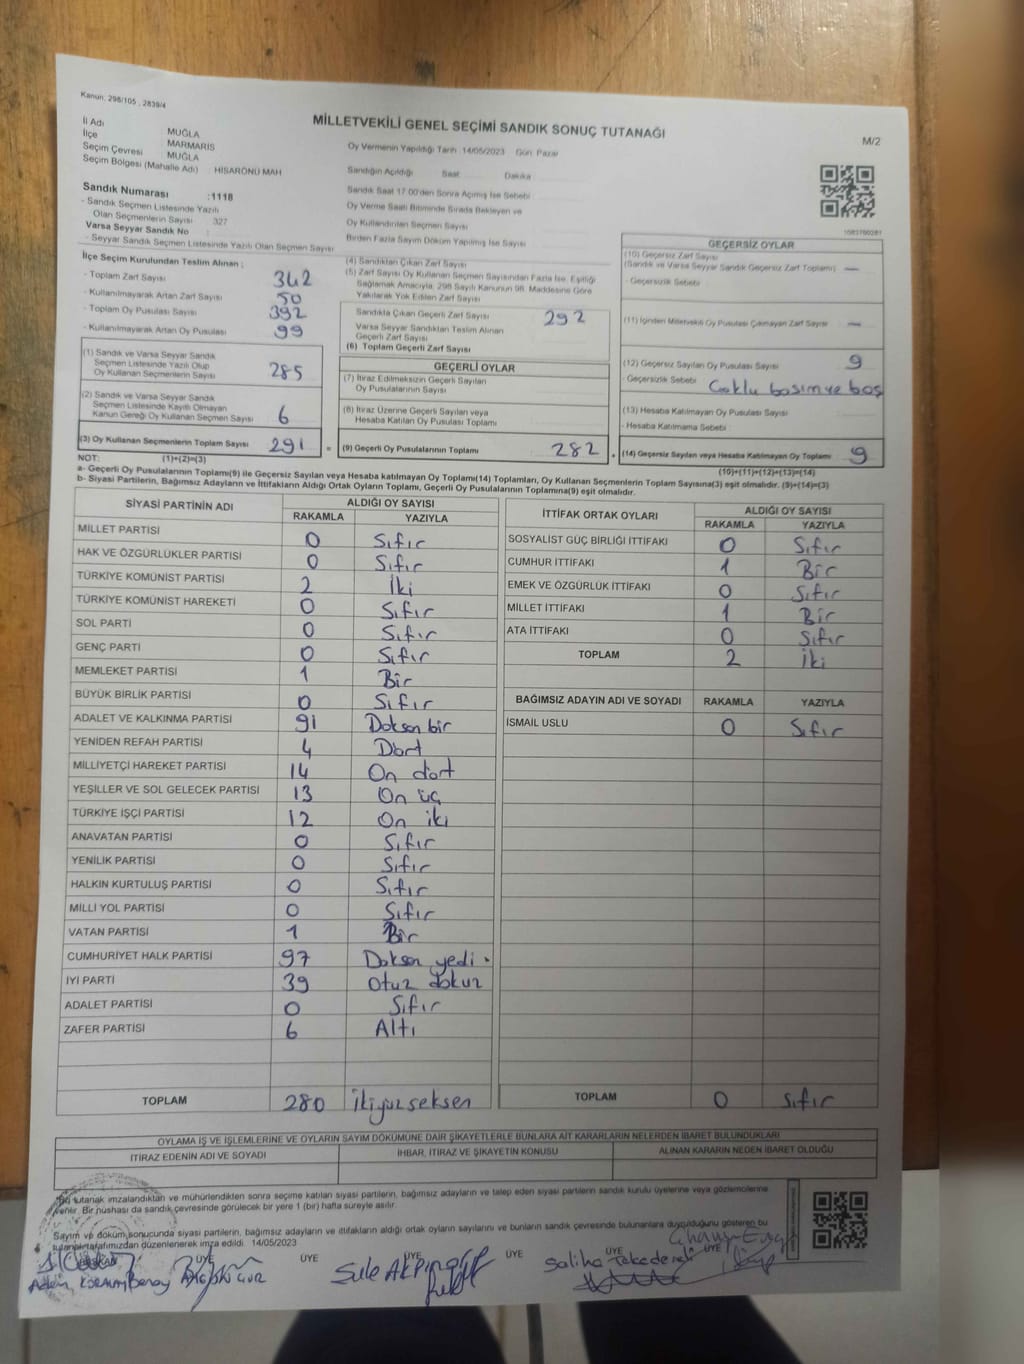 Kanun: 298/105 , 2839/4
MİLLETVEKİLİ GENEL SEÇİMİ SANDIK SONUÇ TUTANAĞI
M/2
İl Adı : MUĞLA
İlçe : MARMARİS
Seçim Çevresi : MUĞLA
Seçim Bölgesi (Mahalle Adı) : HİSARÖNÜ MAH
Sandık Numarası :1118
- Sandık Seçmen Listesinde Yazılı
Olan Seçmenlerin Sayısı 327
Varsa Seyyar Sandık No
- Seyyar Sandık Seçmen Listesinde Yazılı Olan Seçmen Sayısı
Oy Vermenin Yapıldığı Tarih: 14/05/2023 Gün: Pazar
Sandığın Açıldığı Saat Dakika
Sandık Saat 17.00'den Sonra Açılmış İse Sebebi
Oy Verme Saati Bitiminde Sırada Bekleyen ve
Oy Kullandırılan Seçmen Sayısı
Birden Fazla Sayım Döküm Yapılmış İse Sayısı
İlçe Seçim Kurulundan Teslim Alınan ;
- Toplam Zarf Sayısı 342
- Kullanılmayarak Artan Zarf Sayısı 50
- Toplam Oy Pusulası Sayısı 392
- Kullanılmayarak Artan Oy Pusulası 99
(1) Sandık ve Varsa Seyyar Sandık
Seçmen Listesinde Yazılı Olup
Oy Kullanan Seçmenlerin Sayısı 285
(2) Sandık ve Varsa Seyyar Sandık
Seçmen Listesinde Kayıtlı Olmayan
Kanun Gereği Oy Kullanan Seçmen Sayısı 6
(3) Oy Kullanan Seçmenlerin Toplam Sayısı 291 =
(4) Sandıktan Çıkan Zarf Sayısı
(5) Zarf Sayısı Oy Kullanan Seçmen Sayısından Fazla İse, Eşitliği
Sağlamak Amacıyla, 298 Sayılı Kanunun 98. Maddesine Göre
Yakılarak Yok Edilen Zarf Sayısı
Sandıkta Çıkan Geçerli Zarf Sayısı 292
Varsa Seyyar Sandıktan Teslim Alınan
Geçerli Zarf Sayısı
(6) Toplam Geçerli Zarf Sayısı
GEÇERLİ OYLAR
(7) İtiraz Edilmeksizin Geçerli Sayılan
Oy Pusulalarının Sayısı
(8) İtiraz Üzerine Geçerli Sayılan veya
Hesaba Katılan Oy Pusulaları Toplamı
(9) Geçerli Oy Pusulalarının Toplamı 282 +
GEÇERSİZ OYLAR
(10) Geçersiz Zarf Sayısı
(Sandık ve Varsa Seyyar Sandık Geçersiz Zarf Toplamı) —
- Geçersizlik Sebebi
(11) İçinden Milletvekili Oy Pusulası Çıkmayan Zarf Sayısı —
(12) Geçersiz Sayılan Oy Pusulası Sayısı 9
- Geçersizlik Sebebi Çoklu basım ve boş
(13) Hesaba Katılmayan Oy Pusulası Sayısı
- Hesaba Katılmama Sebebi
(14) Geçersiz Sayılan veya Hesaba Katılmayan Oy Toplamı 9
NOT: (1)+(2)=(3) (10)+(11)+(12)+(13)=(14)
a- Geçerli Oy Pusulalarının Toplamı(9) ile Geçersiz Sayılan veya Hesaba katılmayan Oy Toplamı(14) Toplamları, Oy Kullanan Seçmenlerin Toplam Sayısına(3) eşit olmalıdır. (9)+(14)=(3)
b- Siyasi Partilerin, Bağımsız Adayların ve İttifakların Aldığı Ortak Oyların Toplamı, Geçerli Oy Pusulalarının Toplamına(9) eşit olmalıdır.
SİYASİ PARTİNİN ADI ALDIĞI OY SAYISI
RAKAMLA YAZIYLA
MİLLET PARTİSİ 0 Sıfır
HAK VE ÖZGÜRLÜKLER PARTİSİ 0 Sıfır
TÜRKİYE KOMÜNİST PARTİSİ 2 İki
TÜRKİYE KOMÜNİST HAREKETİ 0 Sıfır
SOL PARTİ 0 Sıfır
GENÇ PARTİ 0 Sıfır
MEMLEKET PARTİSİ 1 Bir
BÜYÜK BİRLİK PARTİSİ 0 Sıfır
ADALET VE KALKINMA PARTİSİ 91 Doksan bir
YENİDEN REFAH PARTİSİ 4 Dört
MİLLİYETÇİ HAREKET PARTİSİ 14 On dört
YEŞİLLER VE SOL GELECEK PARTİSİ 13 On üç
TÜRKİYE İŞÇİ PARTİSİ 12 On iki
ANAVATAN PARTİSİ 0 Sıfır
YENİLİK PARTİSİ 0 Sıfır
HALKIN KURTULUŞ PARTİSİ 0 Sıfır
MİLLİ YOL PARTİSİ 0 Sıfır
VATAN PARTİSİ 1 Bir
CUMHURİYET HALK PARTİSİ 97 Doksan yedi
İYİ PARTİ 39 Otuz dokuz
ADALET PARTİSİ 0 Sıfır
ZAFER PARTİSİ 6 Altı
TOPLAM 280 İkiyüzseksen
İTTİFAK ORTAK OYLARI ALDIĞI OY SAYISI
RAKAMLA YAZIYLA
SOSYALİST GÜÇ BİRLİĞİ İTTİFAKI 0 Sıfır
CUMHUR İTTİFAKI 1 Bir
EMEK VE ÖZGÜRLÜK İTTİFAKI 0 Sıfır
MİLLET İTTİFAKI 1 Bir
ATA İTTİFAKI 0 Sıfır
TOPLAM 2 İki
BAĞIMSIZ ADAYIN ADI VE SOYADI RAKAMLA YAZIYLA
İSMAİL USLU 0 Sıfır
TOPLAM 0 Sıfır
OYLAMA İŞ VE İŞLEMLERİNE VE OYLARIN SAYIM DÖKÜMÜNE DAİR ŞİKAYETLERLE BUNLARA AİT KARARLARIN NELERDEN İBARET BULUNDUKLARI
İTİRAZ EDENİN ADI VE SOYADI İHBAR, İTİRAZ VE ŞİKAYETİN KONUSU ALINAN KARARIN NEDEN İBARET OLDUĞU
Bu tutanak imzalandıktan ve mühürlendikten sonra seçime katılan siyasi partilerin, bağımsız adayların ve talep eden siyasi partilerin sandık kurulu üyelerine veya gözlemcilerine
verilir. Bir nüshası da sandık çevresinde görülecek bir yere 1 (bir) hafta süreyle asılır.
Sayım ve döküm sonucunda siyasi partilerin, bağımsız adayların ve ittifakların aldığı ortak oyların sayılarını ve bunların sandık çevresinde bulunanlara duyulduğunu gösteren bu
tutanak tarafımızdan düzenlenerek imza edildi. 14/05/2023
BAŞKAN ÜYE ÜYE ÜYE ÜYE ÜYE ÜYE
Şule AKPINAR
Saliha Tekedereli